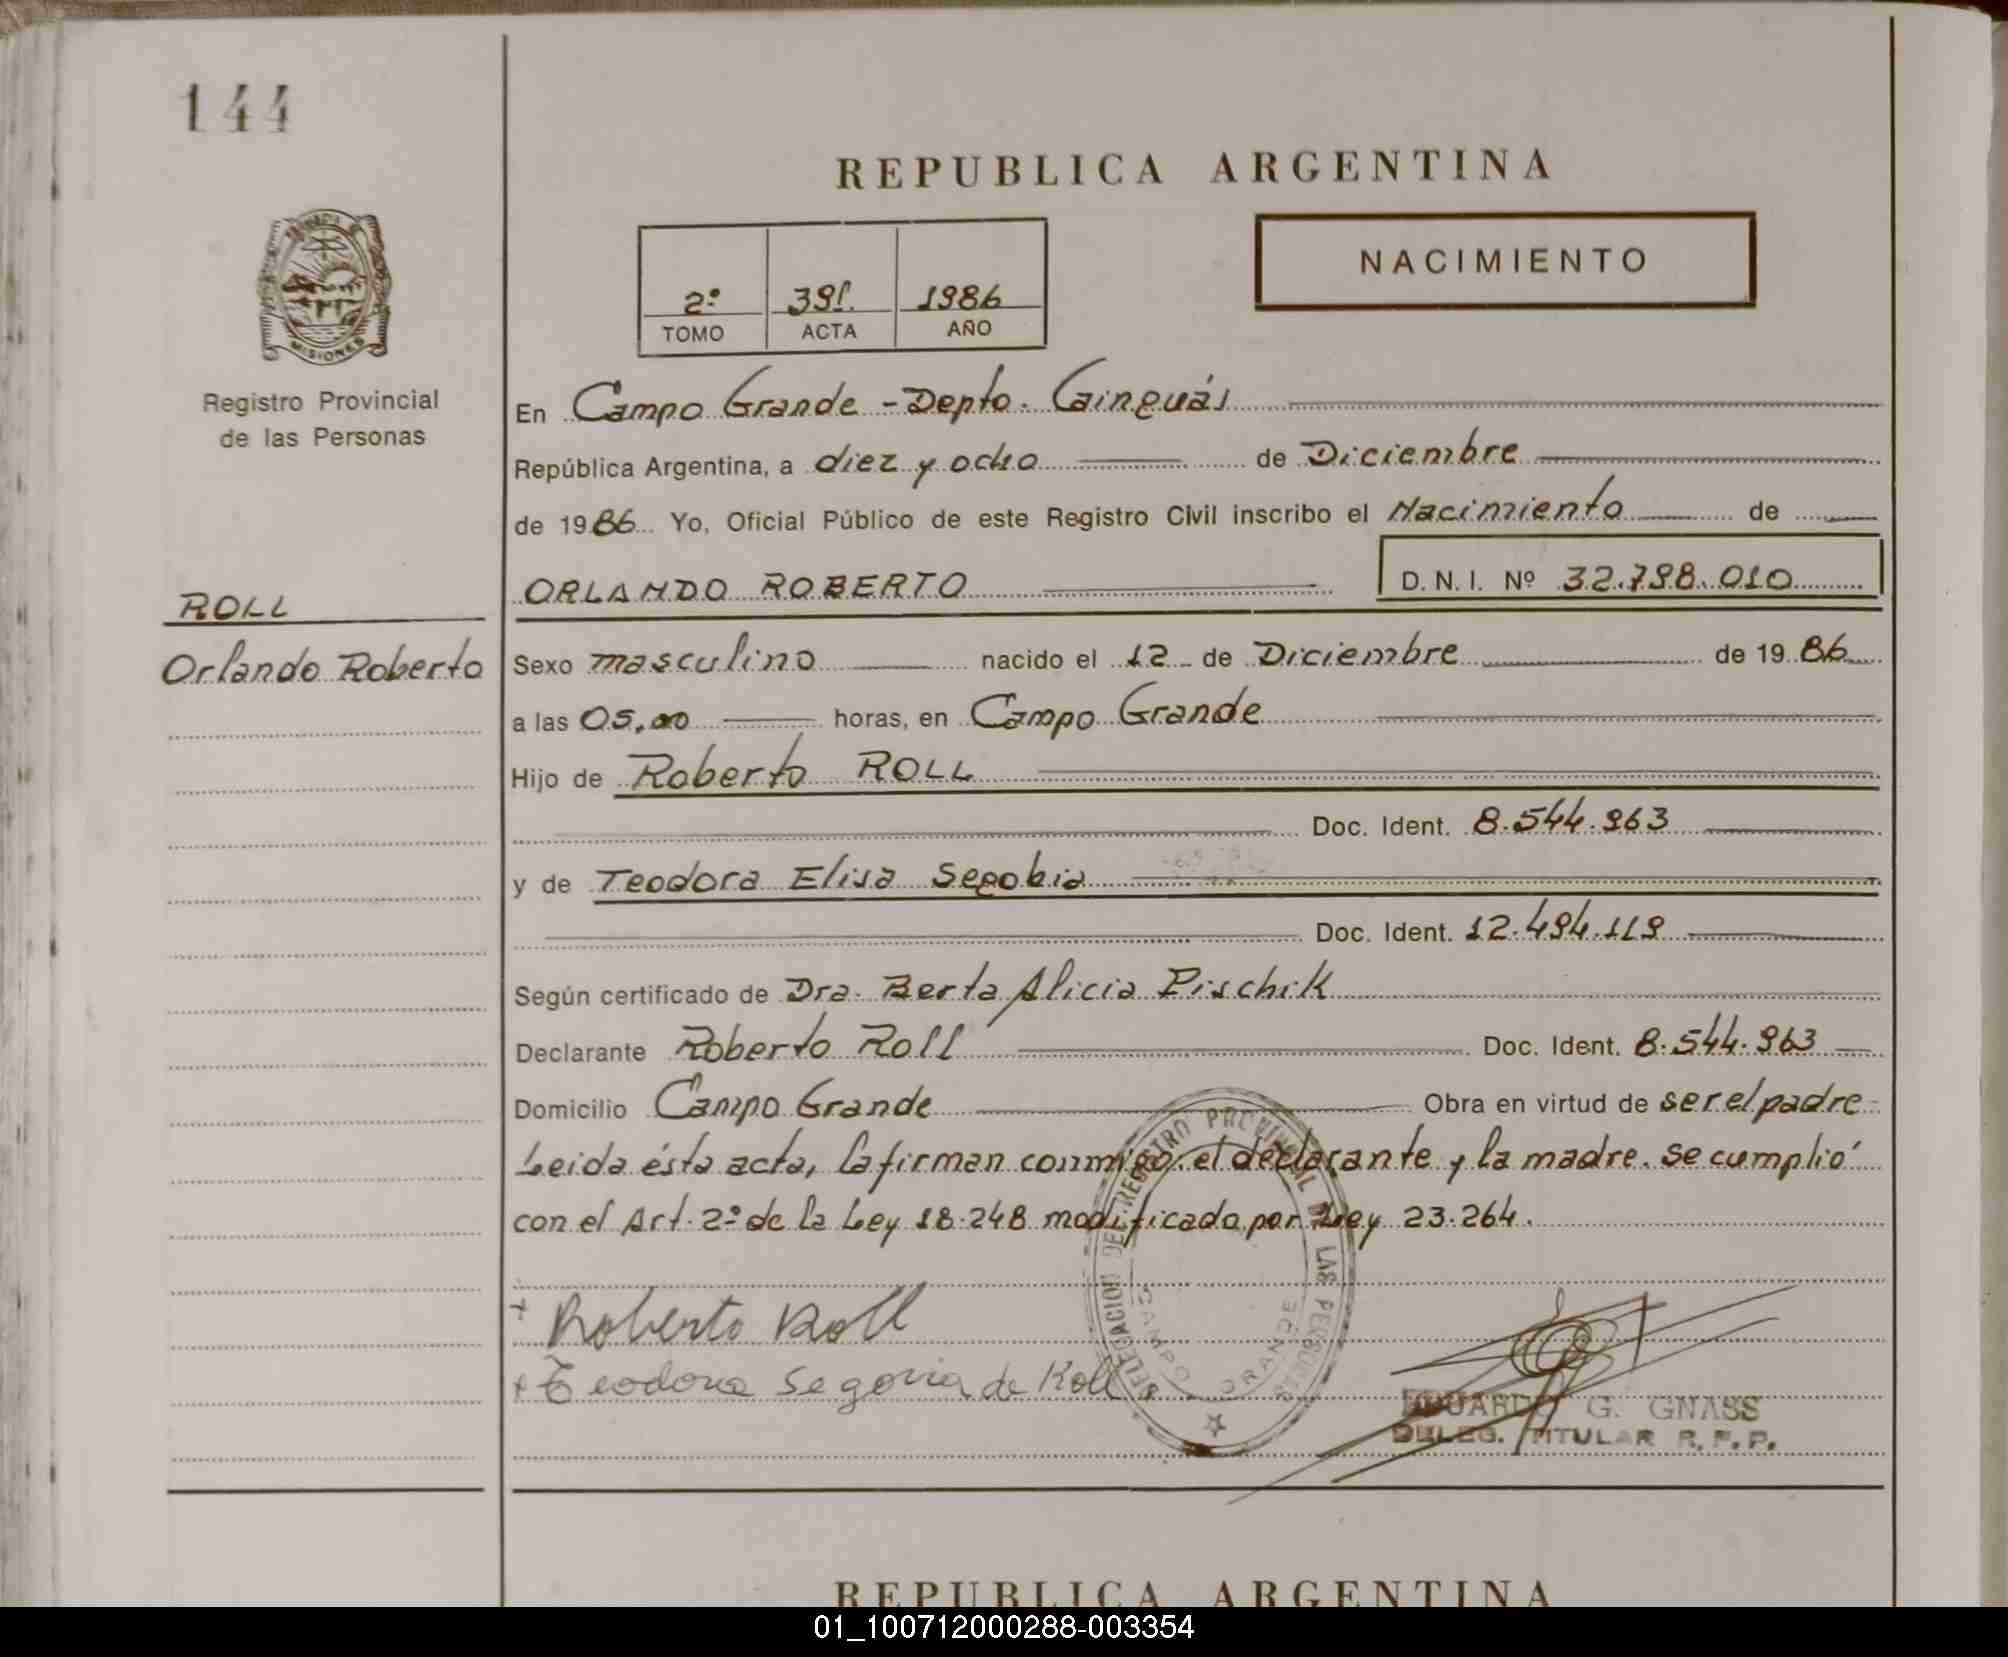 144
REPUBLICA ARGENTINA
NACIMIENTO
2º 391. 1986
TOMO ACTA AÑO
MISIONES
Registro Provincial
de las Personas
En Campo Grande - Depto. Cainguás
República Argentina, a diez y ocho de Diciembre
de 1986 Yo, Oficial Público de este Registro Civil inscribo el Nacimiento de
ROLL
Orlando Roberto
ORLANDO ROBERTO D.N.I. Nº 32.798.010
Sexo masculino nacido el 12 de Diciembre de 1986
a las 05,00 horas, en Campo Grande
Hijo de Roberto ROLL
Doc. Ident. 8.544.963
y de Teodora Elisa Segobia
Doc. Ident. 12.494.119
Según certificado de Dra. Berta Alicia Pischik
Declarante Roberto Roll Doc. Ident. 8.544.963
Domicilio Campo Grande Obra en virtud de ser el padre
Leida ésta acta, la firman conmigo, el declarante y la madre. Se cumplió
con el Art. 2º de la Ley 18.248 modificada por Ley 23.264.
DELEGACION DEL REGISTRO PROVINCIAL DE LAS PERSONAS
CAMPO GRANDE
+ Roberto Roll
+ Teodora Segovia de Roll
EDUARDO G. GNASS
DELEG. TITULAR R.P.P.
REPUBLICA ARGENTINA
01_100712000288-003354